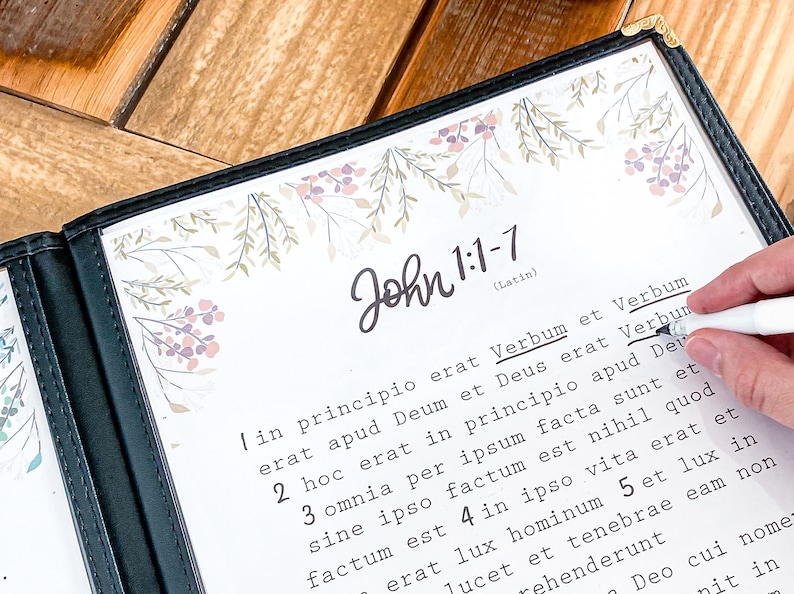 John 1:1-7
(Latin)
1 in principio erat Verbum et Verbum
erat apud Deum et Deus erat Verbum
2 hoc erat in principio apud
3 omnia per ipsum facta sunt et
sine ipso factum est nihil quod
factum est 4 in ipso vita erat et
erat lux hominum 5 et lux in
lucet et tenebrae eam non
Deo cui nomen
in